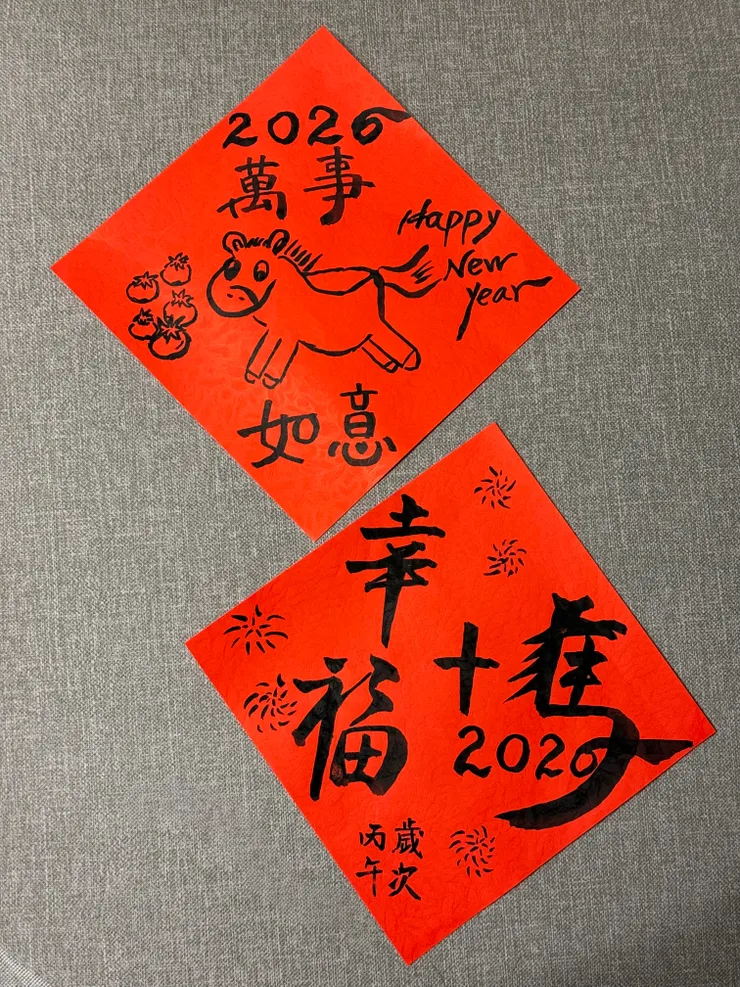 2026
萬事
Happy
New
year
如意
幸福
十
2026
歲次
丙午